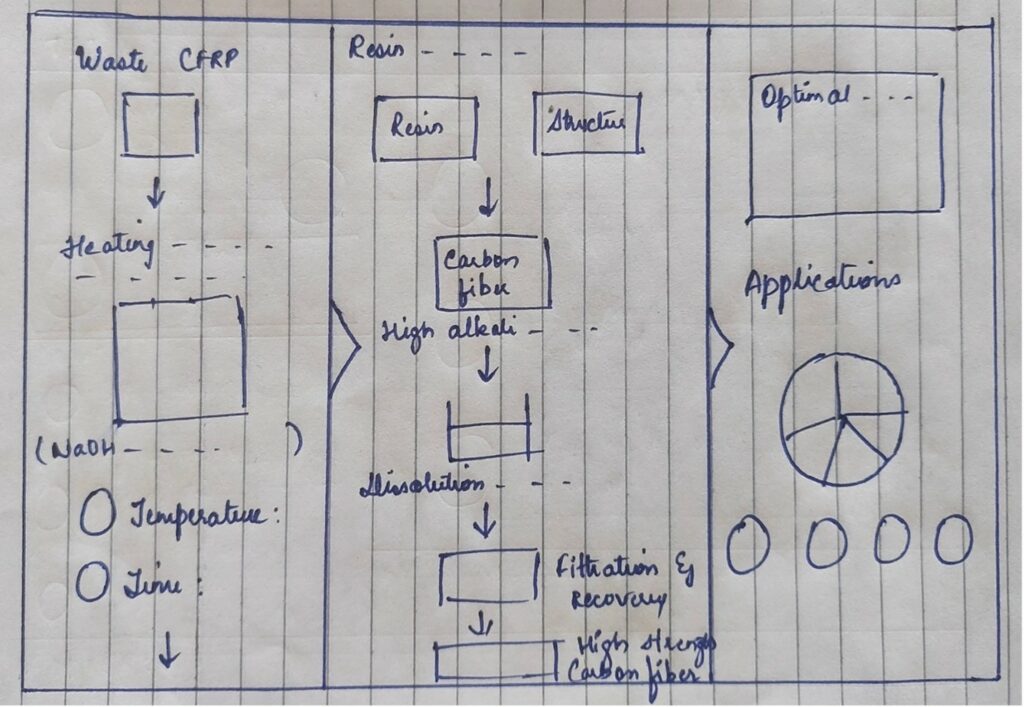 Waste CFRP
Heating - - - -
- - - - - -
(NaOH - - - - )
Temperature:
Time:
Resin - - - -
Resin
Structure
Carbon
fiber
High alkali - - -
Dissolution - - - -
Filtration &
Recovery
High Strength
Carbon fiber
Optimal - - -
Applications